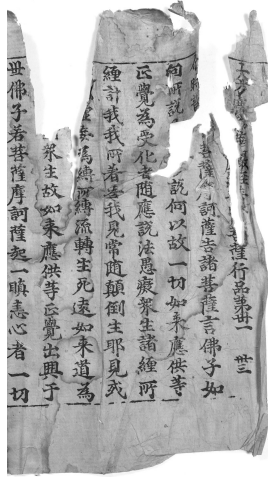 薩行品第卅一 卅三
菩薩摩訶薩告諸菩薩言佛子如
向所說 說何以故一切如来應供等
正覺為受化者隨應說法愚癡衆生諸纏所
纏計我我所著吾我見常隨顛倒生耶見或
妄為縛所縛流轉生死遠如来道為
衆生故如来應供等正覺出興于
世佛子若菩薩摩訶薩起一瞋恚心者一切